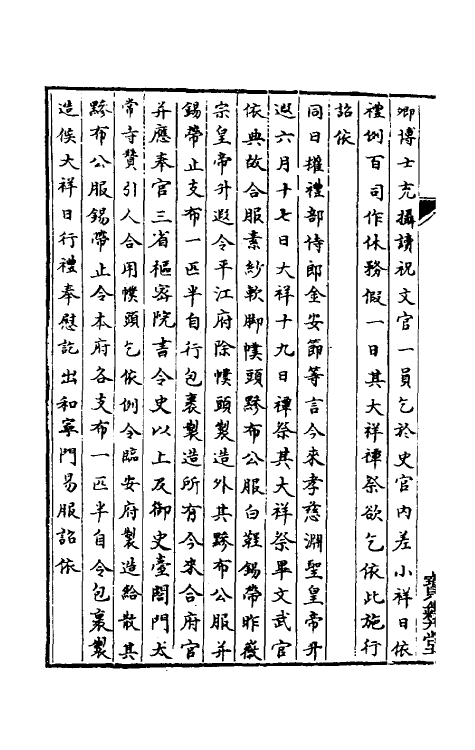 卿博士充攝讀祝文官一員乞於史官內差小祥日依
禮例百司作休務假一日其大祥禫祭欲乞依此施行
詔依
同日權禮部侍郎金安節等言今來孝慈淵聖皇帝升
遐六月十七日大祥十九日禫祭其大祥祭畢文武官
依典故合服素紗軟腳幞頭黪布公服白鞓錫帶昨徽
宗皇帝升遐令平江府除幞頭製造外其黪布公服并
錫帶止支布一匹半自行包裹製造所有今來合府官
并應奉官三省樞密院書令史以上及御史臺閤門太
常寺贊引人合用幞頭乞依例令臨安府製造給散其
黪布公服錫帶止令本府各支布一匹半自令包裹製
造俟大祥日行禮奉慰訖出和寧門易服詔依